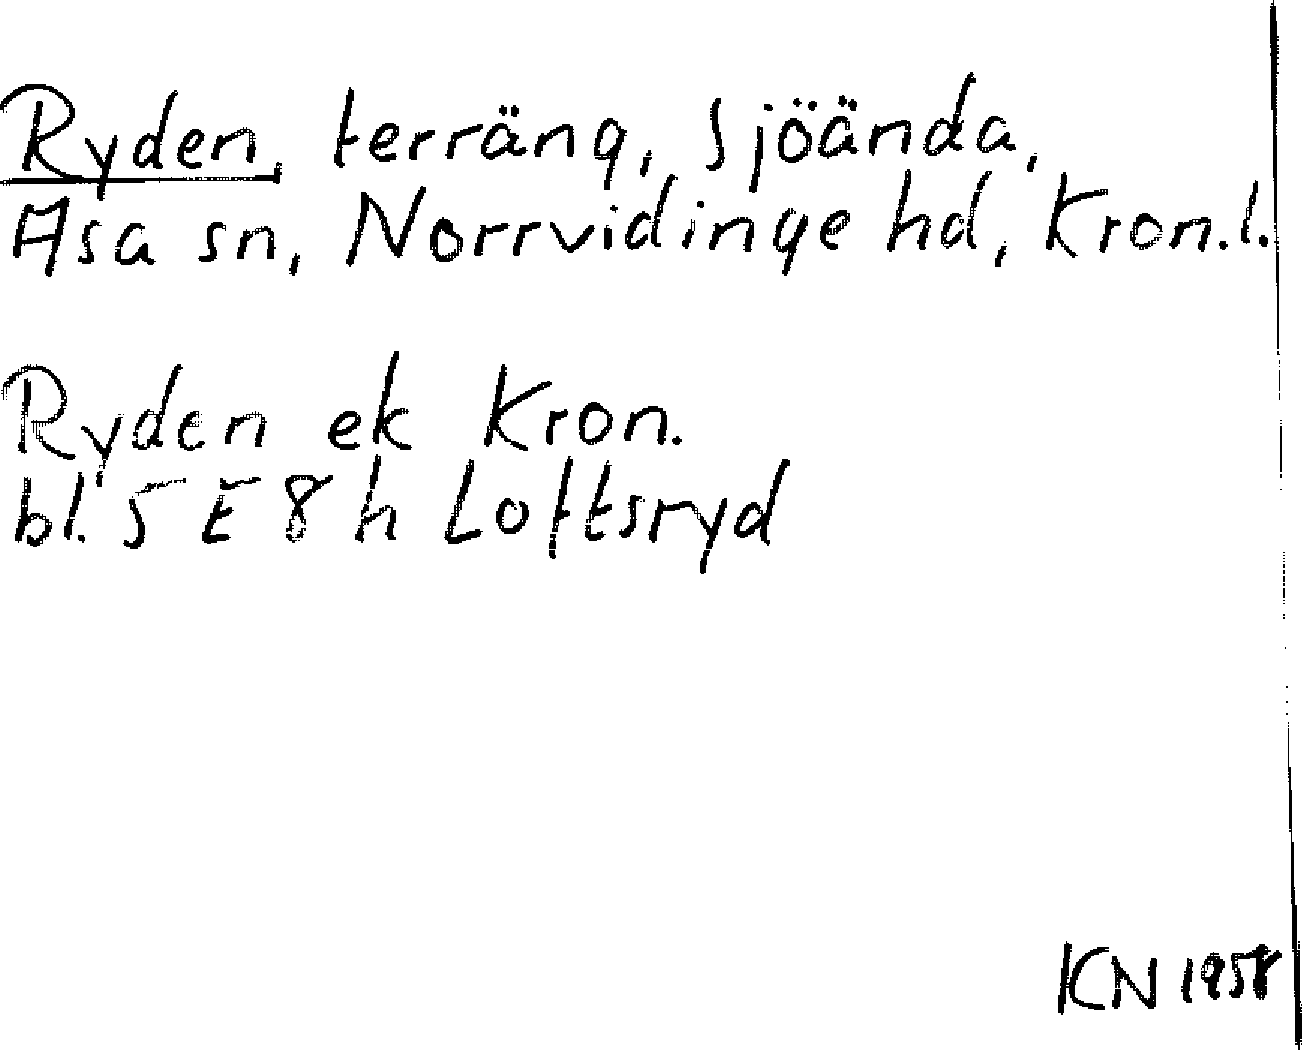 Ryden, terräng, Sjöända,
Asa sn, Norrvidinge hd, Kron.l.
Ryden ek Kron.
bl. 5 E 8 h Loftsryd
KN 1958